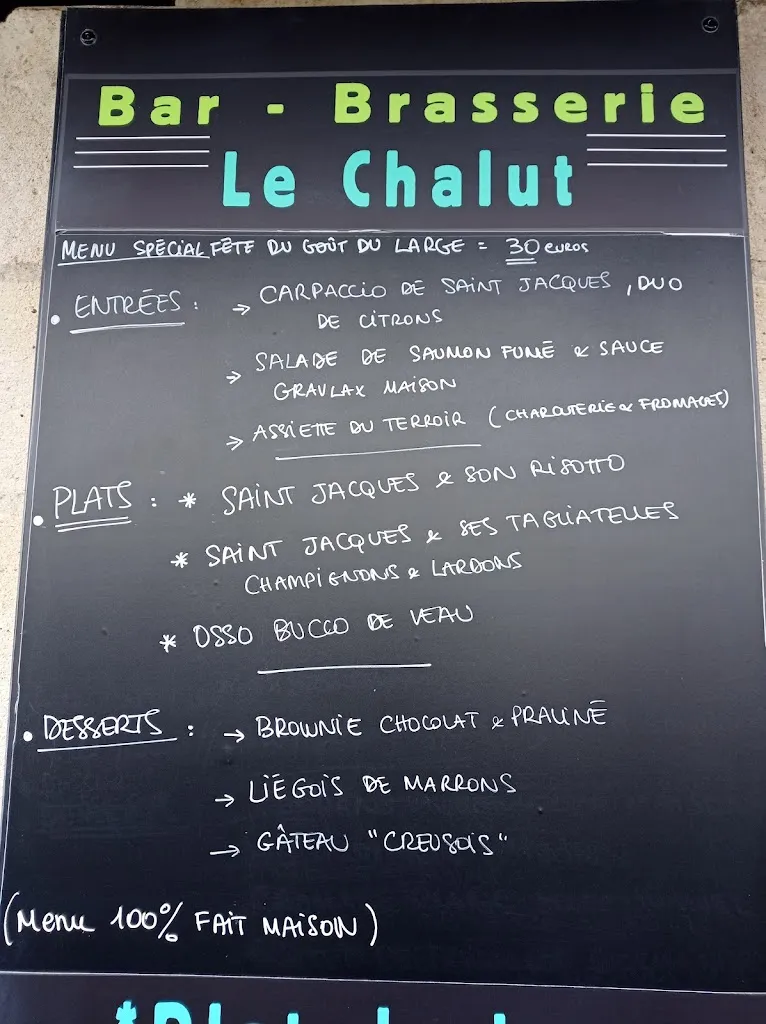 Bar - Brasserie
Le Chalut
MENU SPÉCIAL FÊTE DU GOÛT DU LARGE = 30 euros
• ENTRÉES : → CARPACCIO DE SAINT JACQUES, DUO
DE CITRONS
→ SALADE DE SAUMON FUMÉ & SAUCE
GRAVLAX MAISON
→ ASSIETTE DU TERROIR (CHARCUTERIE & FROMAGES)
• PLATS : * SAINT JACQUES & SON RISOTTO
* SAINT JACQUES & SES TAGLIATELLES
CHAMPIGNONS & LARDONS
* OSSO BUCCO DE VEAU
• DESSERTS : → BROWNIE CHOCOLAT & PRALINÉ
→ LIÉGOIS DE MARRONS
→ GÂTEAU "CREUSOIS"
(Menu 100% FAIT MAISON)